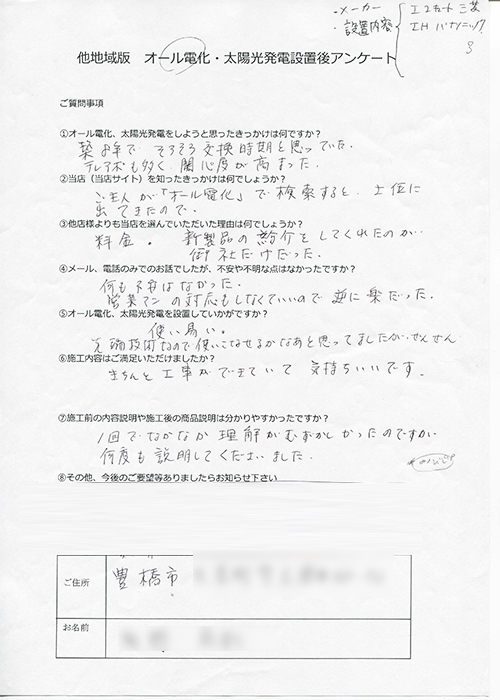 ・メーカー
エコキュート 三菱
・設置内容
IH パナソニック
他地域版 オール電化・太陽光発電設置後アンケート
ご質問事項
①オール電化、太陽光発電をしようと思ったきっかけは何ですか？
そろそろ交換時期と思っていた。
テレアポも多く、関心度が高まった。
②当店（当店サイト）を知ったきっかけは何でしょうか？
ご主人が「オール電化」で検索すると、上位に
出てきたので。
③他店様よりも当店を選んでいただいた理由は何でしょうか？
料金。新製品の紹介をしてくれたのが
御社だけだった。
④メール、電話のみでのお話でしたが、不安や不明な点はなかったですか？
何も不安はなかった。
営業マンの対応もしなくていいので逆に楽だった。
⑤オール電化、太陽光発電を設置していかがですか？
使い易い。
先端技術なので使いこなせるかなあと思ってましたが、ぜんぜん
⑥施工内容はご満足いただけましたか？
きちんと工事ができていて気持ちいいです。
⑦施工前の内容説明や施工後の商品説明は分かりやすかったですか？
1回でなかなか理解がむずかしかったのですが
何度も説明してくださいました。
⑧その他、今後のご要望等ありましたらお知らせ下さい
ご住所
豊橋市
お名前